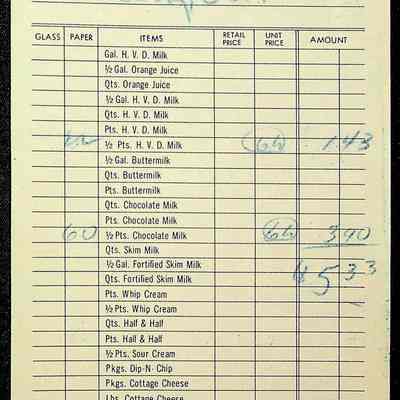 GLASS PAPER ITEMS RETAIL PRICE UNIT PRICE AMOUNT
Gal. H. V. D. Milk
½ Gal. Orange Juice
Qts. Orange Juice
½ Gal. H. V. D. Milk
Qts. H. V. D. Milk
Pts. H. V. D. Milk
22 ½ Pts. H. V. D. Milk 6½ 1.43
½ Gal. Buttermilk
Qts. Buttermilk
Pts. Buttermilk
Qts. Chocolate Milk
Pts. Chocolate Milk
60 ½ Pts. Chocolate Milk 6½ 390
Qts. Skim Milk
½ Gal. Fortified Skim Milk $533
Qts. Fortified Skim Milk
Pts. Whip Cream
½ Pts. Whip Cream
Qts. Half & Half
Pts. Half & Half
½ Pts. Sour Cream
Pkgs. Dip-N-Chip
Pkgs. Cottage Cheese
Lbs. Cottage Cheese